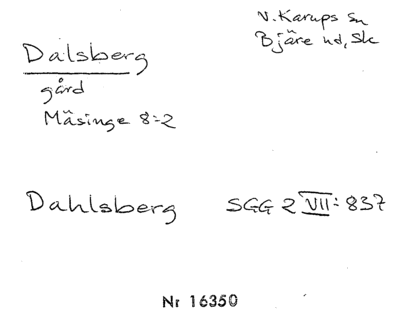 V. Karups sn
Bjäre hd, Sk
Dalsberg
gård
Mäsinge 8:2
Dahlsberg SGG 2 VII: 837
Nr 16350